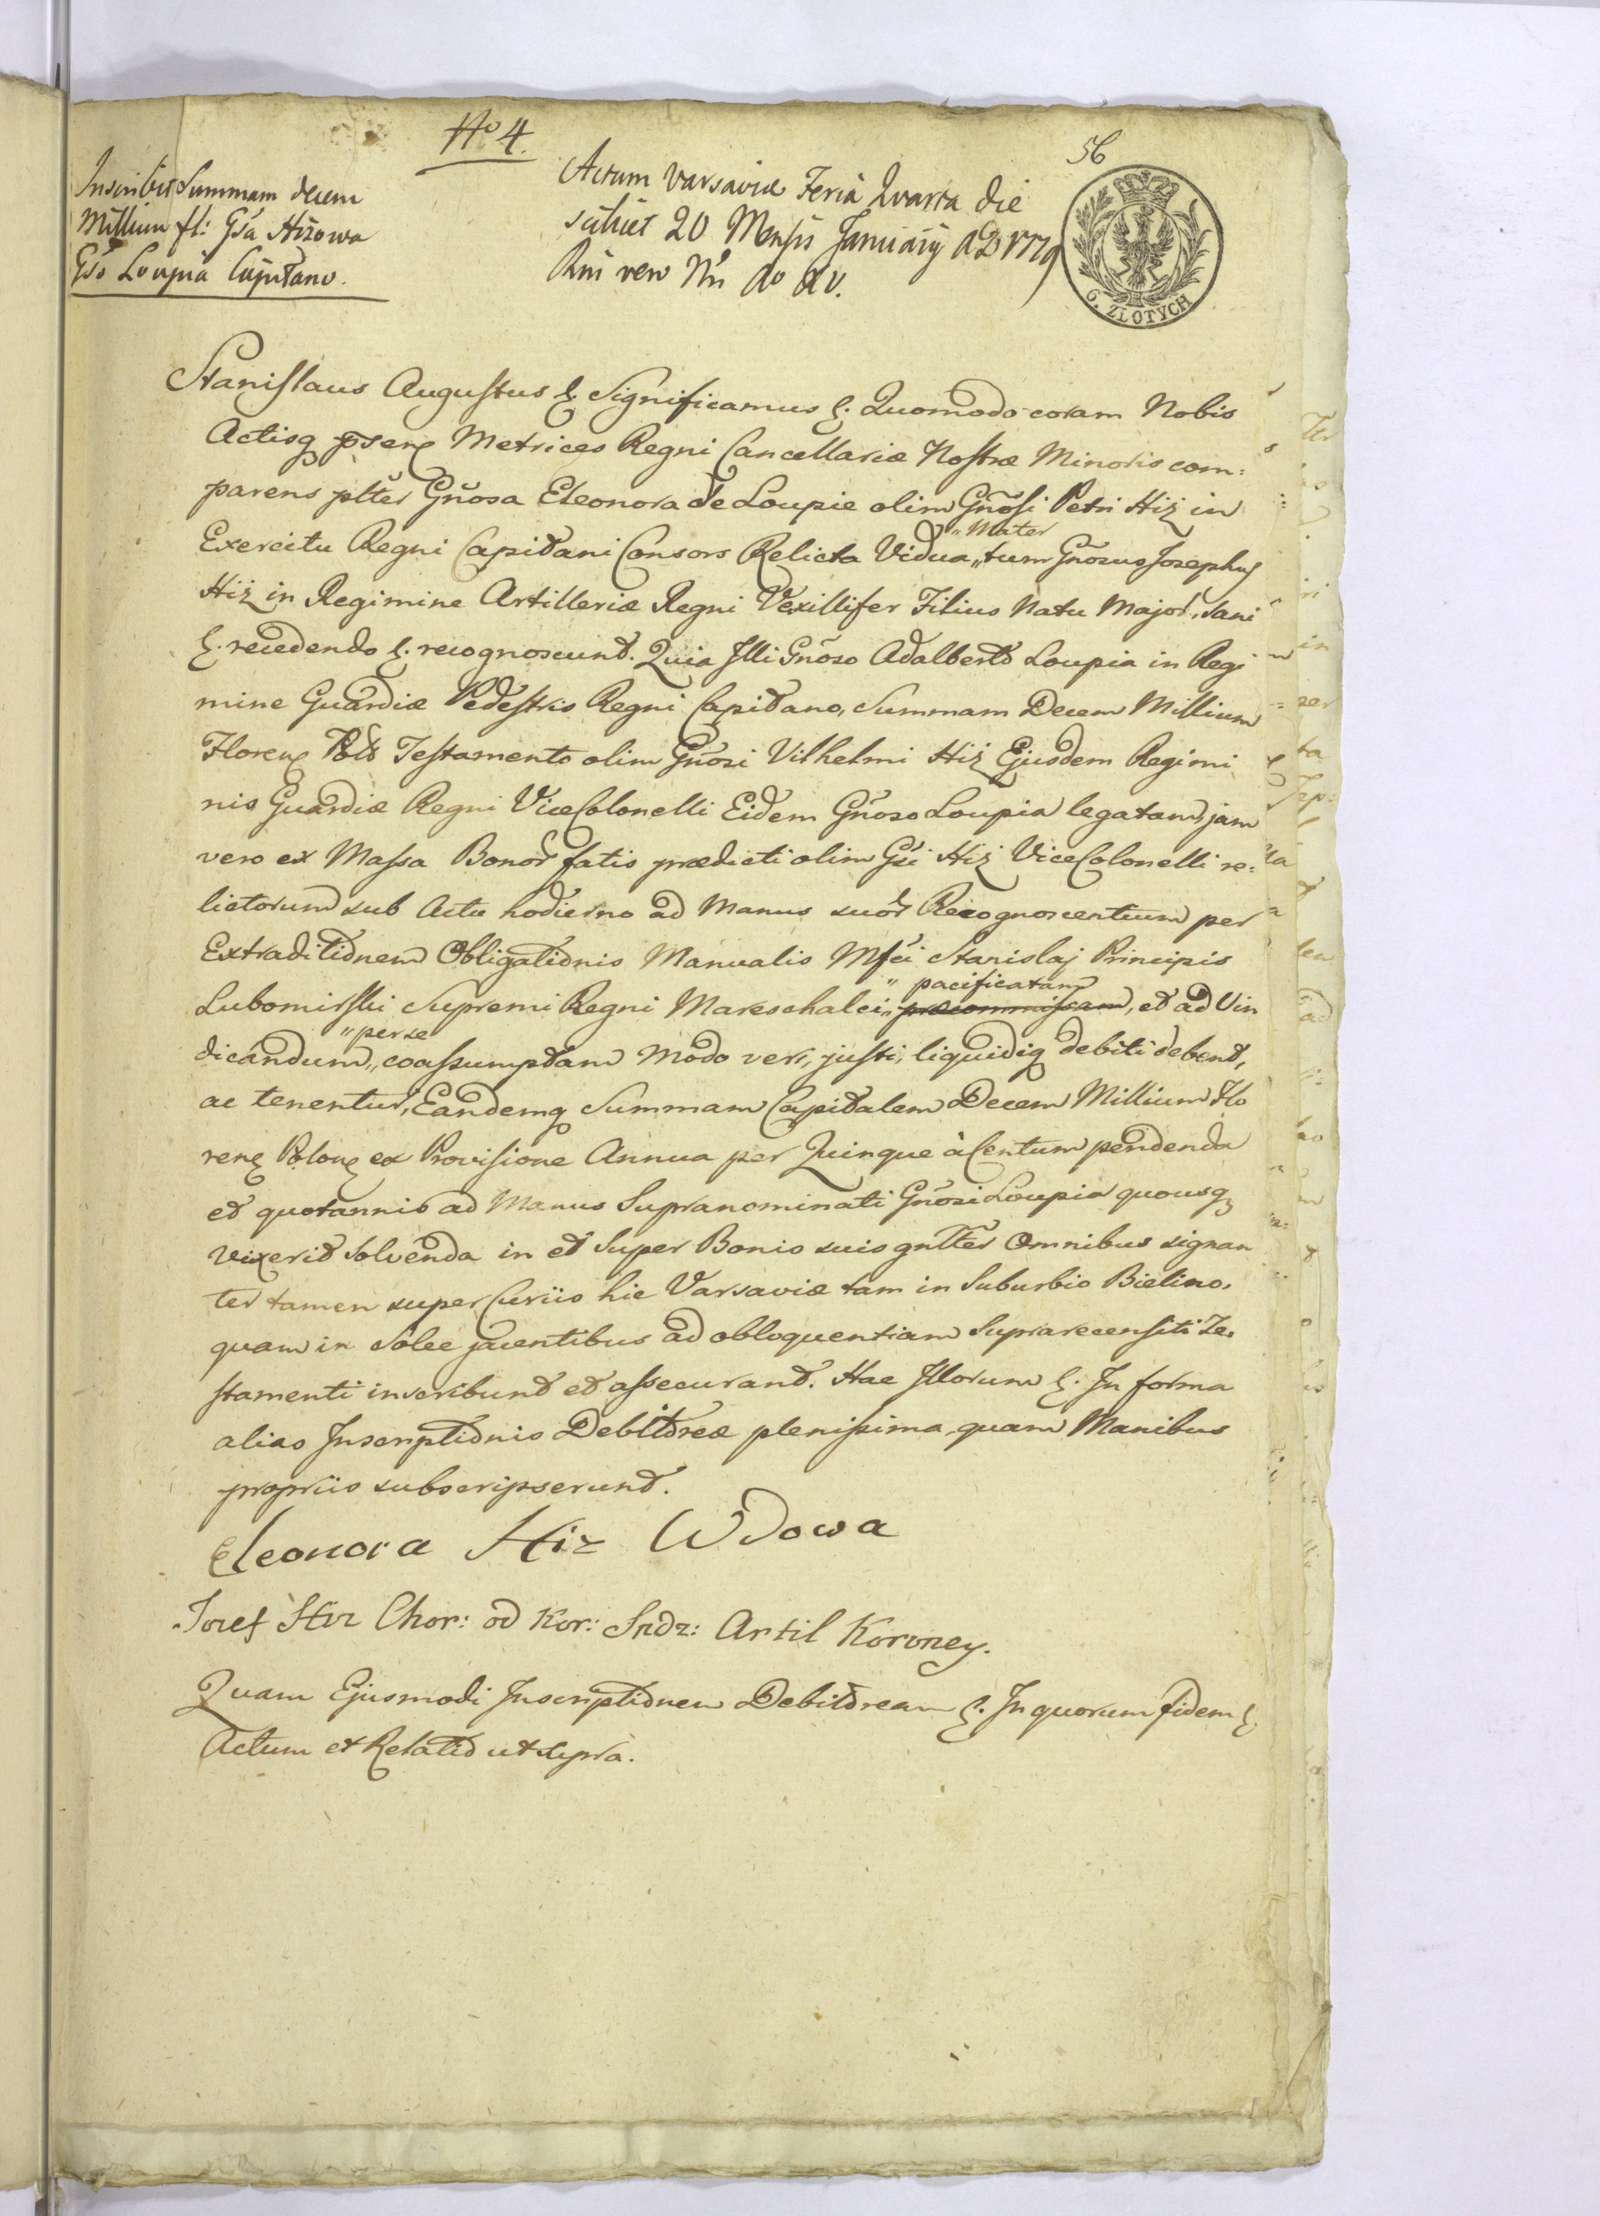 No 4.
56
Inscribit Summam decem
Millium fl: Gsa Hizowa
Gso Loupia Capitano.
Actum Varsaviæ Feria Quarta die
scilicet 20 Mensis Januarij AD 1779
Rni vero Nri Ao XV.
6. ZŁOTYCH
Stanislaus Augustus &. Significamus &. Quomodo coram Nobis
Actisq Metrices Regni Cancellariæ Nostræ Minoris com:
parens pltter Gnosa Eleonora de Loupie olim Gnosi Petri Hiz in
Exercitu Regni Capitani Consors Relicta Vidua „ Mater „ tum Gnosus Josephus
Hiz in Regimine Artilleriæ Regni Vexillifer Filius Natu Major, sani
&. recedendo &. recognoscunt. Quia Illi Gnoso Adalberto Loupia in Regi
mine Guardiæ Pedestris Regni Capitano, Summam Decem Millium
Floren Testamento olim Gnosi Vilhelmi Hiz Ejusdem Regimi
nis Guardiæ Regni ViceColonelli Eidem Gnoso Loupia legatam, jam
vero ex Massa Bonor fatis prædicti olim Gsi Hiz ViceColonelli re:
lictorum sub Actu hodierno ad Manus suor Recognoscentium per
Extraditionem Obligationis Manualis Mfci Stanislaj Principis
Lubomirski Supremi Regni Mareschalci „ pacificatam, et ad Vin
dicandum „ per se coassumptam modo veri, justi, liquidiq debiti debent,
ac tenentur, Eandemq Summam Capitalem Decem Millium Flo
ren Polon ex Provisione Annua per Quinque à Centum pendenda
et quotannis ad Manus Supranominati Gnosi Loupia quousq
vixerit solvenda in et super Bonis suis gnlter Omnibus signan
ter tamen super Curiis hic Varsaviæ tam in Suburbio Bielino,
quam in Solec jacentibus ad obloquentiam Suprarecensiti Te,
stamenti inscribunt et assecurant. Hac Illorum &. In forma
alias Inscriptionis Debitoreæ plenissima, quam Manibus
propriis subscripserunt.
Eleonora Hiz Wdowa
Jozef Hiz Chor: od Kor: Artil Koroney.
Quam Ejusmodi Inscriptionem Debitoream &. In quorum fidem &.
Actum et Relatio ut supra.